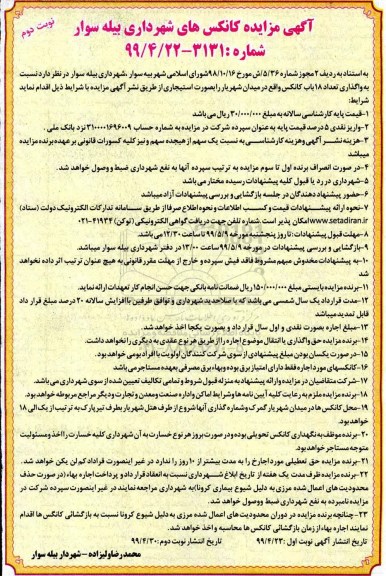 نوبت دوم
آگهی مزایده کانکس های شهرداری بیله سوار
شماره :۳۱۳۱-۹۹/۴/۲۲
به استناد به ردیف ۲ مجوز شماره ۵/۳۶/ش مورخ ۹۸/۱۰/۱۶ شورای اسلامی شهر بیله سوار ،شهرداری بیله سوار در نظر دارد نسبت
به واگذاری تعداد ۱۸ باب کانکس واقع در میدان شهریار را بصورت استیجاری از طریق نشر آگهی مزایده با شرایط ذیل اقدام نماید
شرایط:
۱-قیمت پایه کارشناسی سالانه به مبلغ ۳۰/۰۰۰/۰۰۰ ریال می باشد
۲-واریز نقدی ۵ درصد قیمت پایه به عنوان سپرده شرکت در مزایده به شماره حساب ۳۱۰۰۰۰۱۶۹۶۰۰۹ نزد بانک ملی .
۳-هزینه نشر آگهی وهزینه کارشناسی به نسبت یک سهم از هیجده سهم و نیز کلیه کسورات قانونی بر عهده برنده مزایده
میباشد
۴-در صورت انصراف برنده اول تا سوم مزایده به ترتیب سپرده آنها به نفع شهرداری ضبط و وصول خواهد شد.
۵-شهرداری در رد یا قبول کلیه پیشنهادات رسیده مختار می باشد
۶-حضور پیشنهاد دهندگان در جلسه بازگشایی و بررسی پیشنهادات آزاد میباشد
۷-نحوه ارائه پیشنهادات قیمت و کسب اطلاعات و نحوه اطلاع صرفا از طریق سامانه تدارکات الکترونیک دولت (ستاد)
www.setadiran.ir امکان پذیر است.شماره تلفن جهت دریافت گواهی الکترونیکی (توکن) ۴۱۹۳۴-۰۲۱
۸-مهلت قبول پیشنهادات:تا روز پنجشنبه مورخه ۹۹/۵/۹ تا ساعت ۱۲/۳۰ می باشد.
۹-بازگشایی و بررسی پیشنهادات در مورخه ۹۹/۵/۹ ساعت ۱۳/۰۰ در دفتر شهرداری بیله سوار میباشد.
۱۰-به پیشنهادات مخدوش مبهم مشروط فاقد فیش سپرده و خارج از مهلت مقرر قانونی به هیچ عنوان ترتیب اثر داده نخواهد
شد
۱۱-برنده مزایده بایستی مبلغ ۱۵۰/۰۰۰/۰۰۰ ریال ضمانت نامه بانکی جهت حسن انجام کار تعهدات ارائه نماید.
۱۲-مدت قرارداد یک سال شمسی می باشد که با صلاحدید شهرداری و توافق طرفین با افزایش سالانه ۲۰ درصد مبلغ قرار داد
قابل تمدید میباشد
۱۳-مبلغ اجاره بصورت نقدی و اول سال قرار داد و بصورت یکجا اخذ خواهد شد.
۱۴-برنده مزایده حق واگذاری یا انتقال موضوع اجاره را از طریق هر نوع عقدی به دیگری را نخواهد داشت.
۱۵-در صورت یکسان بودن مبلغ پیشنهادی از سوی شرکت کنندگان اولویت با افراد بومی خواهد بود.
۱۶-کانکسهای مورد اجاره فقط دارای امتیاز برق بوده و بهاء برق مصرفی بعهده مستاجر می باشد
۱۷-شرکت متقاضیان در مزایده و ارائه پیشنهاد به منزله قبول شروط و تمامی تکالیف تعیین شده از سوی شهرداری می باشد.
۱۸-برنده مزایده ملزم به رعایت کلیه آیین نامه ها و شرایط اماکن و اداره صنعت و معدن و تجارت و دیگر مراجع مربوطه خواهد بود.
۱۹-محل کانکس ها در میدان شهریار گمرک و شماره گذاری آنها شروع از طرف هتل شهریار بطرف تیر پارک به ترتیب از یک الی ۱۸
خواهد بود.
۲۰-برنده موظف به نگهداری کانکس تحویلی بوده و در صورت بروز هر نوع خسارت به آن شهرداری کلیه خسارت را اخذ و مسئولیت
متوجه مستاجر خواهد بود.
۲۱-برنده مزایده حق تعطیلی مورد اجاره را به مدت بیشتر از ۱۰ روز را ندارد در غیر اینصورت قرارداد کم لن یکن خواهد شد.
۲۲-برنده مزایده ظرف مدت یک هفته از تاریخ ابلاغ شهرداری نسبت به انعقاد قرار داد و پرداخت اجاره بهاء (در صورت حذف
محدودیت های اعمال شده مرزی به دلیل شیوع بیماری کرونا) به شهرداری مراجعه نمایند در غیر اینصورت سپرده شرکت در
مزایده نامبرده به نفع شهرداری ضبط و وصول خواهد شد.
۲۳-چنانچه برنده مزایده در دوران محدودیت های اعمال شده مرزی به دلیل شیوع کرونا نسبت به بازگشائی کانکس ها اقدام
نمایند اجاره بهاء از زمان بازگشائی کانکس ها محاسبه و اخذ خواهد شد.
تاریخ انتشار آگهی نوبت اول :۹۹/۴/۲۳ تاریخ انتشار نوبت دوم :۹۹/۴/۳۰
محمدرضا ولیزاده - شهردار بیله سوار